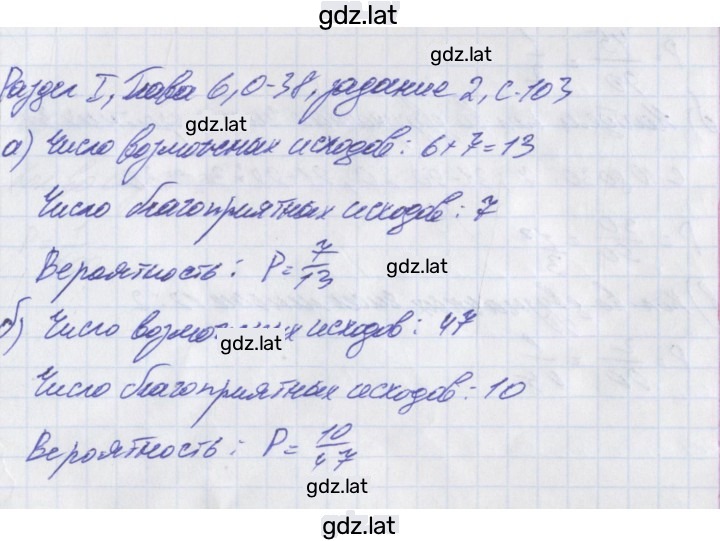 gdz.lat
gdz.lat
Раздел I, Глава 6, О-38, задание 2, с. 103
gdz.lat
а) Число возможных исходов: 6+7=13
Число благоприятных исходов: 7
Вероятность: P=7/13
gdz.lat
б) Число возможных исходов: 47
gdz.lat
Число благоприятных исходов: 10
Вероятность: P=10/47
gdz.lat
gdz.lat